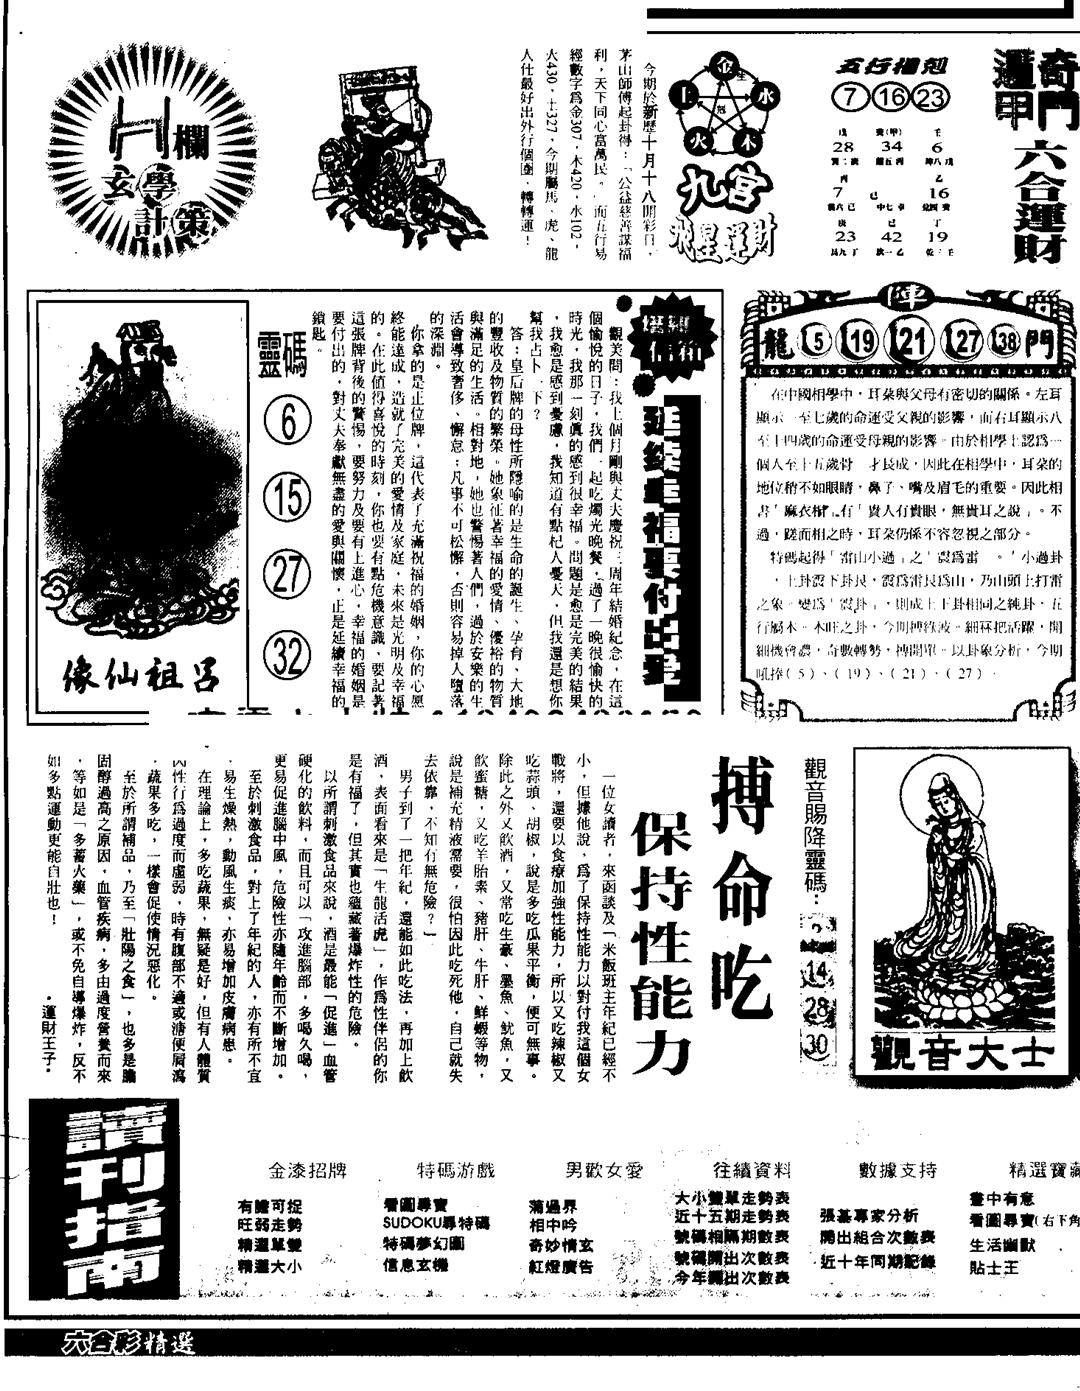 奇門
遁甲
六合運財
五行相剋
7 16 23
戊 癸(甲) 壬
28 34 6
丙 乙
7 己 16
庚 己 丁
23 42 19
金 水 木 火 土
九宮
飛星運財
今期於新歷十月十八開彩日,
茅山師傅起卦得:「公益慈善謀福
利,天下同心富萬民。」而五行易
經數字為金307,木420,水102,
火430,土327,今期屬馬、虎、龍
人仕最好出外行個圈,轉轉運!
H欄
玄學
計策
陣
龍 5 19 21 27 38 門
在中國相學中,耳朵與父母有密切的關係。左耳
顯示一至七歲的命運受父親的影響,而右耳顯示八
至十四歲的命運受母親的影響。由於相學上認為一
個人至十五歲骨 才長成,因此在相學中,耳朵的
地位稍不如眼睛,鼻子、嘴及眉毛的重要。因此相
書「麻衣相」有「貴人有貴眼,無貴耳之說」。不
過,蹉而相之時,耳朵仍係不容忽視之部分。
特碼起得「雷山小過」之「震為雷」。「小過卦
,上卦震下卦艮,震為雷艮為山,乃山頭上打雷
之象。變為「震卦」,則成上下卦相同之純卦,五
行屬木。木旺之卦,今期搏綠波。細冧把活躍,開
細機會濃,奇數轉勢,搏開單。以卦象分析,今期
吼捧(5)、(19)、(21)、(27)。
延續幸福要付出愛
觀美問:我上個月剛與丈夫慶祝三周年結婚紀念,在這
個愉悅的日子,我們一起吃燭光晚餐,過了一晚很愉快的
時光,我那一刻真的感到很幸福。問題是愈是完美的結果
,我愈是感到憂慮,我知道有點杞人憂天,但我還是想你
幫我占卜一下?
答:皇后牌的母性所隱喻的是生命的誕生、孕育、大地
的豐收及物質的繁榮。她象征著幸福的愛情、優裕的物質
與滿足的生活。相對地,她也警惕著人們,過於安樂的生
活會導致奢侈、懈怠;凡事不可松懈,否則容易掉入墮落
的深淵。
你拿的是正位牌,這代表了充滿祝福的婚姻,你的心愿
終能達成,造就了完美的愛情及家庭,未來是光明及幸福
的。在此值得喜悅的時刻,你也要有點危機意識,要記著
這張牌背後的警惕,要努力及要有上進心,幸福的婚姻是
要付出的,對丈夫奉獻無盡的愛與關懷,正是延續幸福的
鎖匙。
靈碼
6
15
27
32
呂祖仙像
觀音賜降靈碼:
2
14
28
30
觀音大士
搏命吃
保持性能力
一位女讀者,來函談及「米飯班主年紀已經不
小,但據他說,為了保持性能力以對付我這個女
戰將,還要以食療加強性能力,所以又吃辣椒又
吃蒜頭、胡椒,說是多吃瓜果平衡,便可無事。
除此之外又飲酒,又常吃生蠔、墨魚、魷魚,又
飲蜜糖,又吃羊胎素、豬肝、牛肝、鮮蝦等物,
說是補充精液需要,很怕因此吃死他,自己就失
去依靠,不知有無危險?」
男子到了一把年紀,還能如此吃法,再加上飲
酒,表面看來是「生龍活虎」,作為性伴侶的你
是有福了,但其實也蘊藏著爆炸性的危險。
以所謂刺激食品來說,酒是最能「促進」血管
硬化的飲料,而且可以「攻進腦部」,多喝久喝,
更易促進腦中風,危險性亦隨年齡而不斷增加。
至於刺激食品,對上了年紀的人,亦有所不宜
,易生燥熱,動風生痰,亦易增加皮膚病患。
在理論上,多吃蔬果,無疑是好,但有人體質
因性行為過度而虛弱,時有腹部不適或溏便屑瀉
,蔬果多吃,一樣會促使情況惡化。
至於所謂補品,乃至「壯陽之食」,也多是膽
固醇過高之原因,血管疾病,多由過度營養而來
,等如是「多蓄火藥」,或不免自導爆炸,反不
如多點運動更能自壯也!
·運財王子·
讀刊指南
金漆招牌
有膽可捉
旺弱走勢
精選單雙
精選大小
特碼游戲
看圖尋寶
SUDOKU尋特碼
特碼夢幻圖
信息玄機
男歡女愛
蒲過界
相中吟
奇妙情玄
紅燈廣告
往績資料
大小雙單走勢表
近十五期走勢表
號碼相隔期數表
號碼開出次數表
今年開出次數表
數據支持
張基專家分析
開出組合次數表
近十年同期記錄
精選寶藏
畫中有意
看圖尋寶(右下角
生活幽默
貼士王
六合彩精選